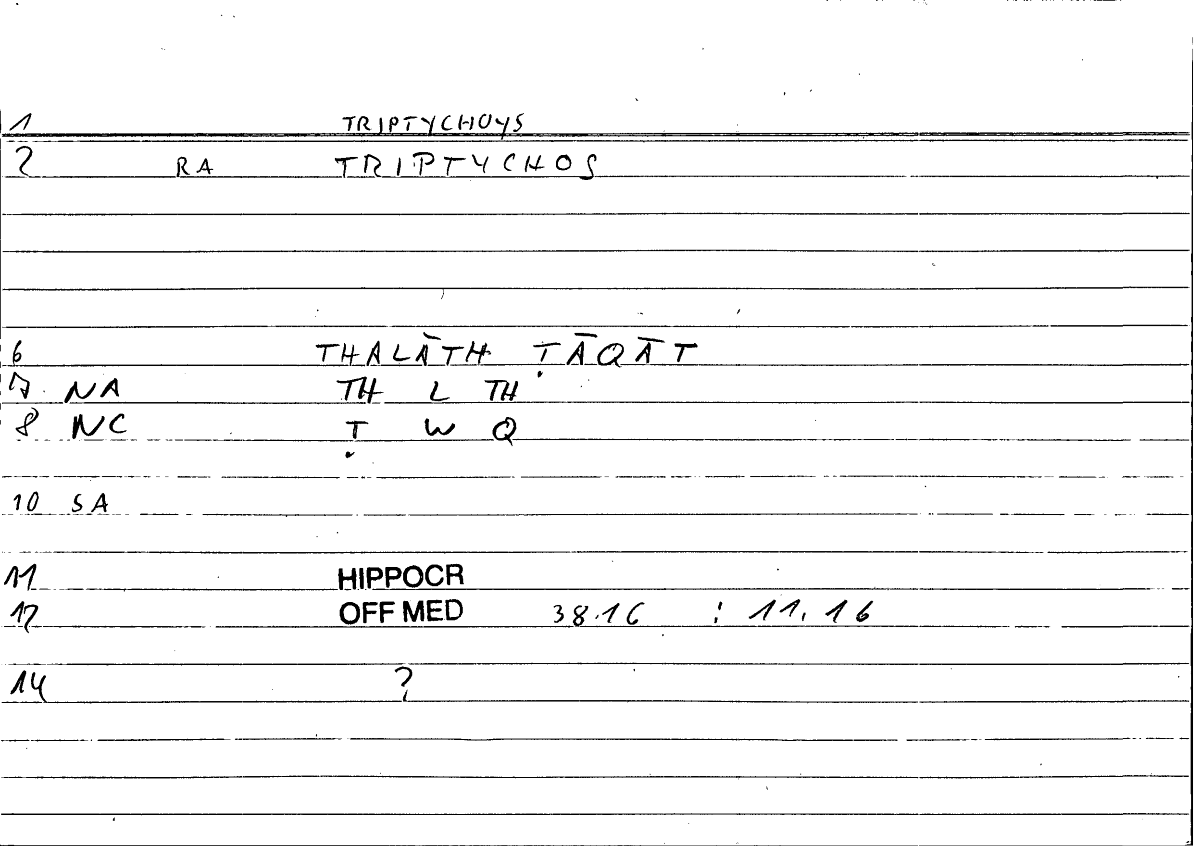 1 TRIPTYCHOYS
2 RA TRIPTYCHOS
6 THALĀTH ṬĀQĀT
7 NA TH L TH
8 NC Ṭ W Q
10 SA
11 HIPPOCR
12 OFF MED 38.16 : 11.16
14 ?